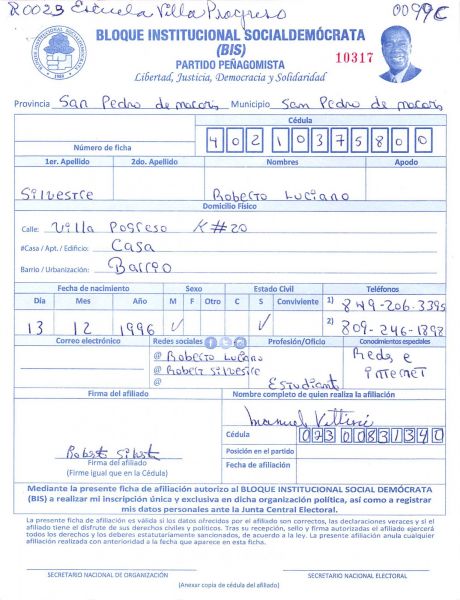 R0023 Escuela Villa Progreso 0099C
BLOQUE INSTITUCIONAL SOCIALDEMÓCRATA
(BIS)
PARTIDO PEÑAGOMISTA
10317
Libertad, Justicia, Democracia y Solidaridad
BLOQUE INSTITUCIONAL SOCIALDEMÓCRATA
Provincia San Pedro de macoris Municipio San Pedro de macoris
Cédula
Número de ficha 40210375800
1er. Apellido 2do. Apellido Nombres Apodo
Silvestre Roberto Luciano
Domicilio Físico
Calle: Villa Posreso K#20
#Casa / Apt. / Edificio: Casa
Barrio / Urbanización: Barrio
Fecha de nacimiento Sexo Estado Civil Teléfonos
Día Mes Año M F Otro C S Conviviente 1) 849-206-3395
13 12 1996 ✓ ✓ 2) 809-246-1892
Correo electrónico Redes sociales Profesión/Oficio Conocimientos especiales
@ Roberto Luciano Reds e
@ Robert Silvestre internet
@ Estudiante
Firma del afiliado Nombre completo de quien realiza la afiliación
Manuel Vittini
Cédula 02300831340
Posición en el partido
Firma del afiliado
(Firme igual que en la Cédula)
Fecha de afiliación
Mediante la presente ficha de afiliación autorizo al BLOQUE INSTITUCIONAL SOCIAL DEMÓCRATA
(BIS) a realizar mi inscripción única y exclusiva en dicha organización política, así como a registrar
mis datos personales ante la Junta Central Electoral.
La presente ficha de afiliación es válida si los datos ofrecidos por el afiliado son correctos, las declaraciones veraces y si el
afiliado tiene el disfrute de sus derechos civiles y políticos. Tras su recepción, sello y firma autorizadas el afiliado ejercerá
todos los derechos y los deberes estatutariamente sancionados, de acuerdo a la ley. La afiliación presente anula cualquier
afiliación realizada con anterioridad a la fecha que aparece en esta ficha.
SECRETARIO NACIONAL DE ORGANIZACIÓN SECRETARIO NACIONAL ELECTORAL
(Anexar copia de cédula del afiliado)